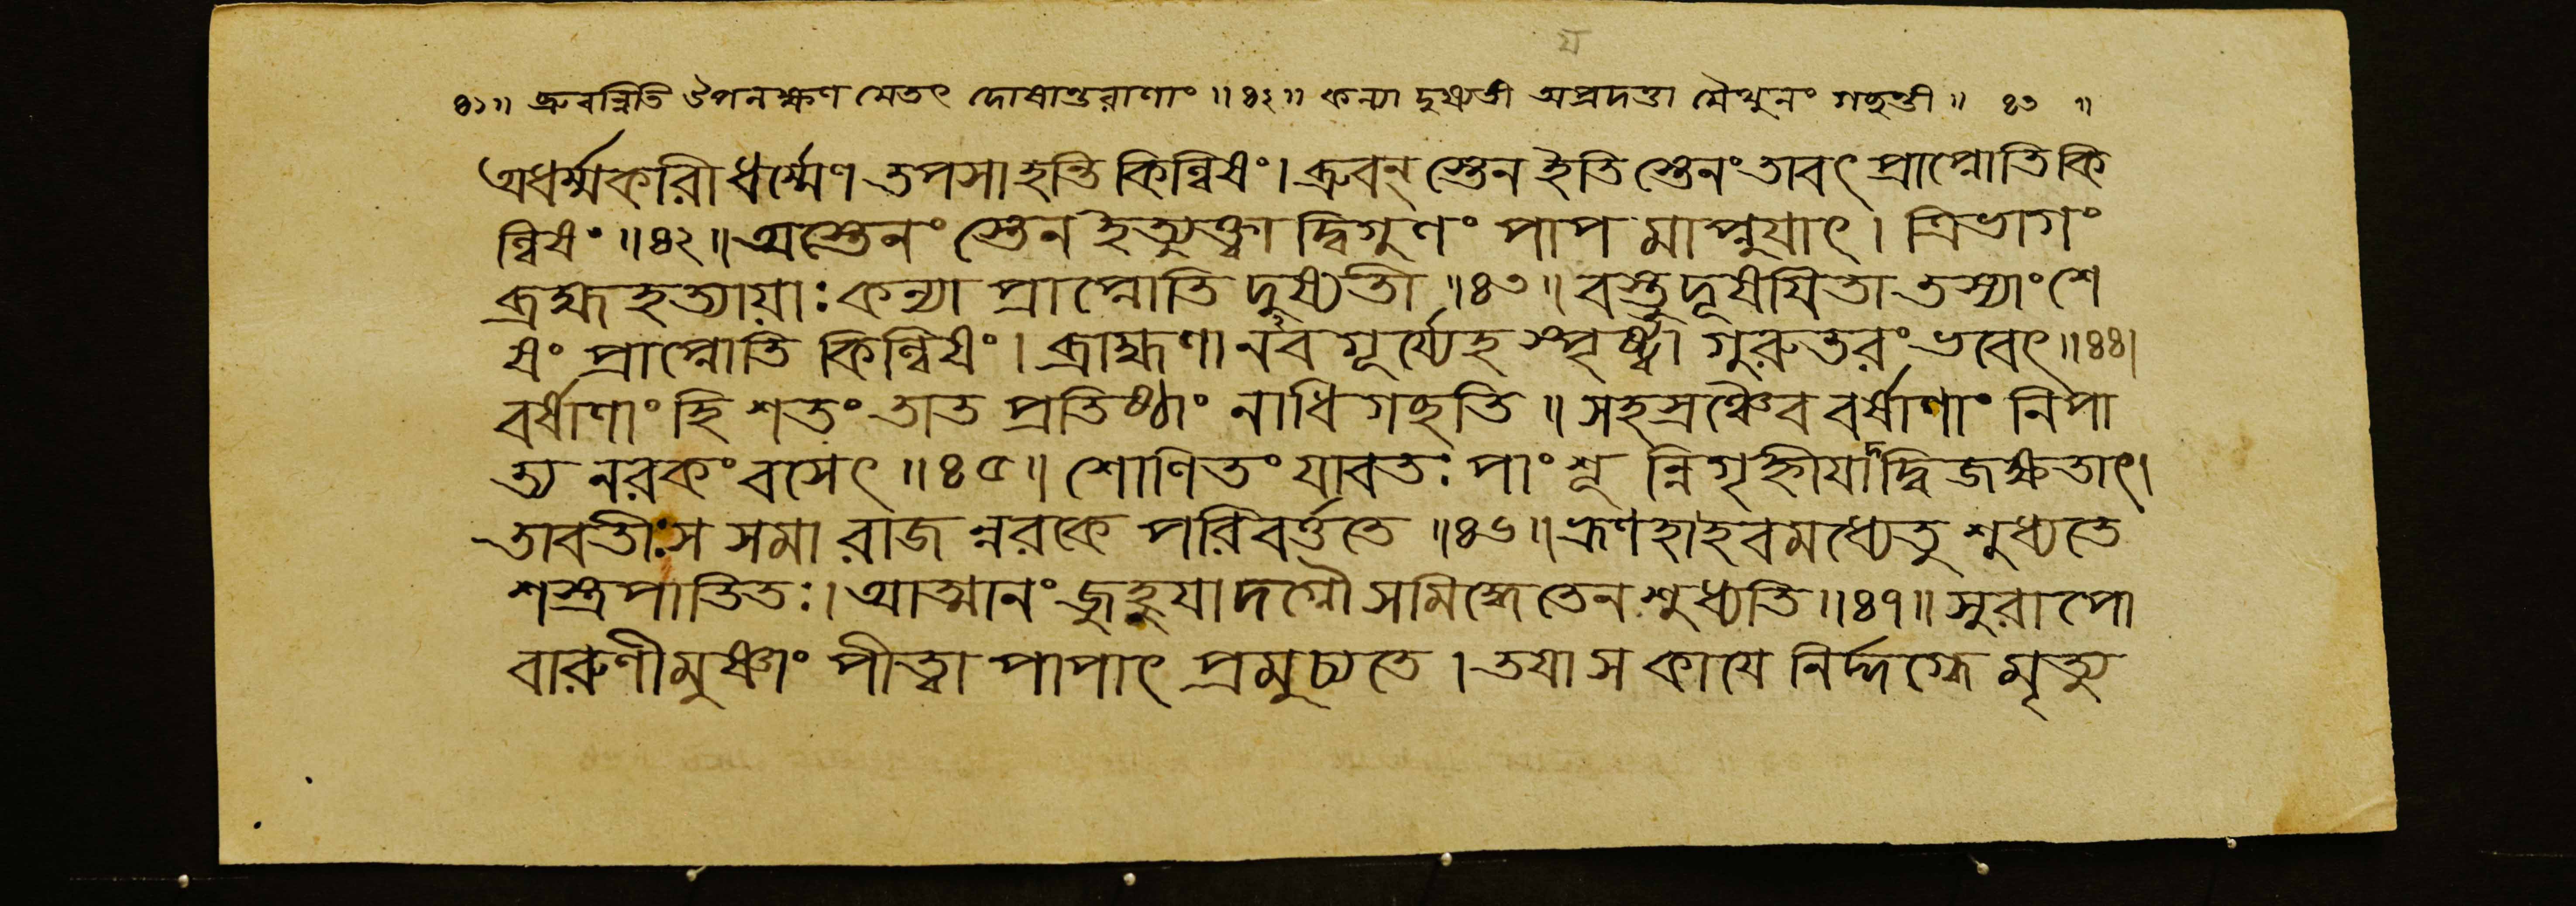 য
৪১॥ ব্রুবন্নিতি উপলক্ষণ মেতৎ দোষান্তরাণাং ॥৪২॥ কন্যা দুষ্যতী অপ্রদত্তা মৈথুনং গচ্ছন্তী ॥ ৪৩ ॥
অধর্ম্মকারী ধর্ম্মেণ তপসা হন্তি কিল্বিষং। ব্রুবন্ স্তেন ইতি স্তেনং তাবৎ প্রাপ্নোতি কি
ল্বিষং ॥৪২॥ অস্তেনং স্তেন ইত্যুক্ত্বা দ্বিগুণং পাপ মাপ্নুযাৎ। ত্রিভাগং
ব্রহ্ম হত্যায়া: কন্যা প্রাপ্নোতি দুষ্যতী ॥৪৩॥ বস্তু দূষযিতা তস্যাং শে
ষং প্রাপ্নোতি কিল্বিষং। ব্রাহ্মণা নবগূর্য্যেহ স্পৃষ্ট্বা গুরুতরং ভবেৎ॥৪৪।
বর্ষাণাং হি শতং তাত প্রতিষ্ঠাং নাধি গচ্ছতি ॥ সহস্রঞ্চৈব বর্ষাণাং নিপা
ত্য নরকং বসেৎ ॥৪৫॥ শোণিতং যাবত: পাংশূ ন্নিগৃহ্ণীযাদ্দ্বিজক্ষতাৎ।
তাবতী: স সমা রাজ ন্নরকে পরিবর্ত্ততে ॥৪৬॥ ভ্রূণহাহবমধ্যে তু শুধ্যতে
শস্ত্রপাতিত:। আত্মানং জুহুযাদগ্নৌ সমিদ্ধে তেন শুধ্যতি ॥৪৭॥ সুরাপো
বারুণীমুষ্ণাং পীত্বা পাপাৎ প্রমুচ্যতে। তযা স কাযে নির্দ্দগ্ধে মৃত্যু